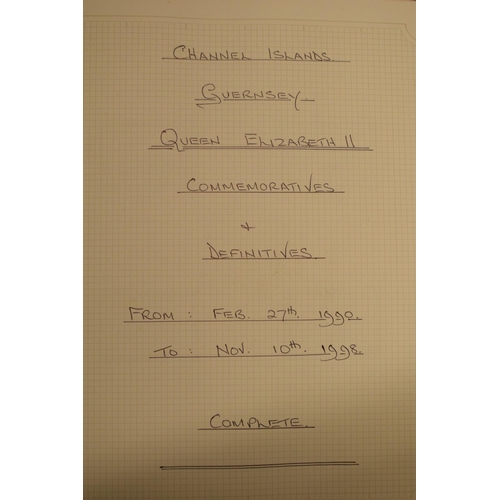 CHANNEL ISLANDS.
GUERNSEY
QUEEN ELIZABETH II
COMMEMORATIVES
+
DEFINITIVES.
FROM : FEB. 27th. 1990.
TO : NOV. 10th. 1998.
COMPLETE.